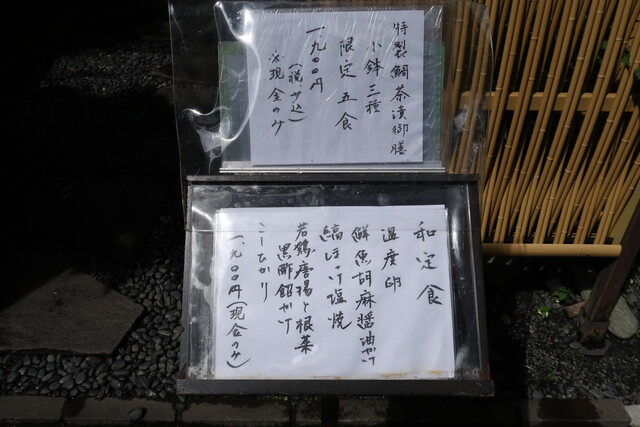 特製鯛茶漬御膳
小鉢三種
限定五食
一、九〇〇円
(税込)
※現金のみ
和定食
温度卵
鮮魚胡麻醤油かけ
縞ほっけ塩焼
若鶏唐揚と根菜
黒酢餡かけ
こしひかり
一、九〇〇円(現金のみ)